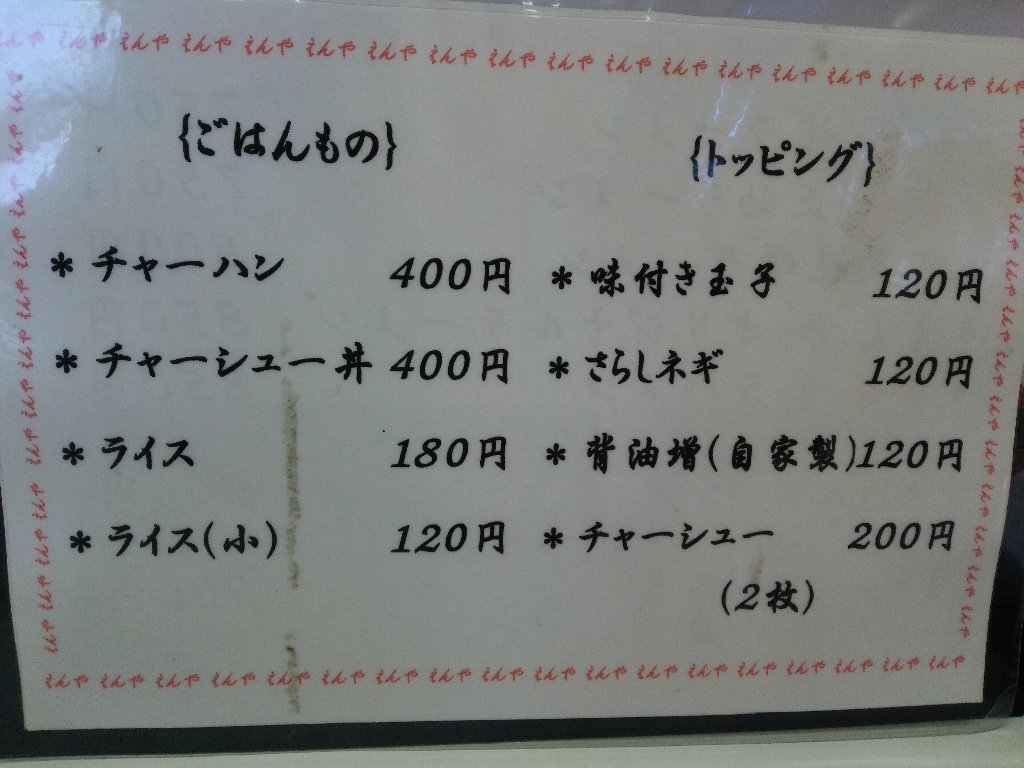 えんや えんや えんや えんや えんや えんや えんや えんや えんや えんや えんや えんや えんや えんや えんや えんや えんや
{ごはんもの}
* チャーハン 400円
* チャーシュー丼 400円
* ライス 180円
* ライス(小) 120円
{トッピング}
* 味付き玉子 120円
* さらしネギ 120円
* 背油増(自家製)120円
* チャーシュー 200円
(2枚)
えんや えんや えんや えんや えんや えんや えんや えんや えんや えんや えんや えんや えんや えんや えんや えんや えんや